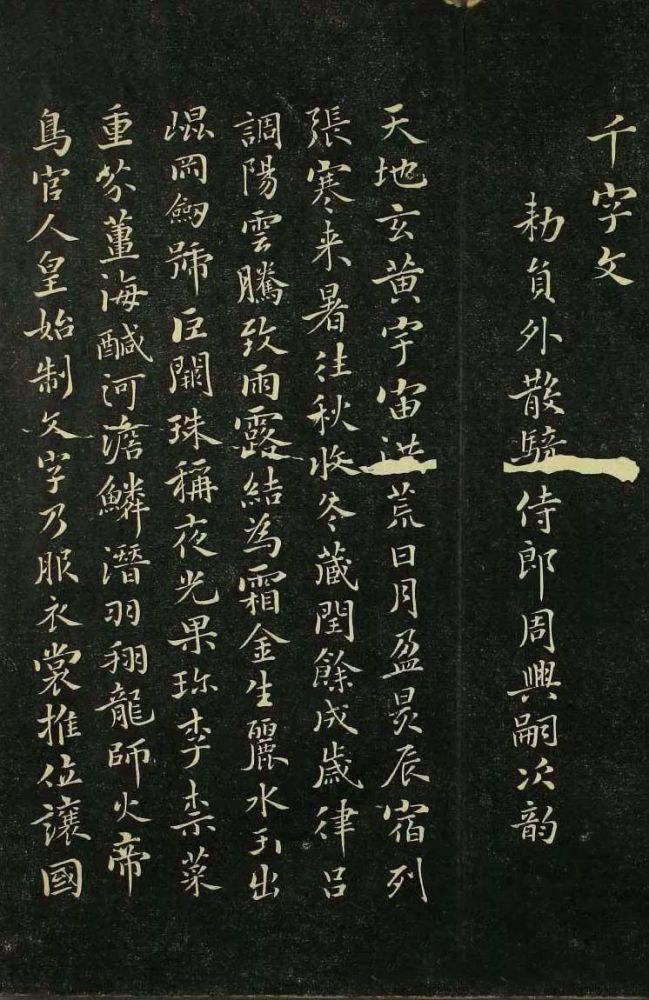 千字文
勑員外散騎侍郎周興嗣次韵
天地玄黄宇宙洪荒日月盈昃辰宿列
張寒来暑往秋收冬蔵閏餘成歳律吕
調陽雲騰致雨露結為霜金生麗水玉出
崐岡劔號巨闕珠稱夜光果珎李柰菜
重芥薑海醎河澹鱗潛羽翔龍師火帝
鳥官人皇始制文字乃服衣裳推位讓國